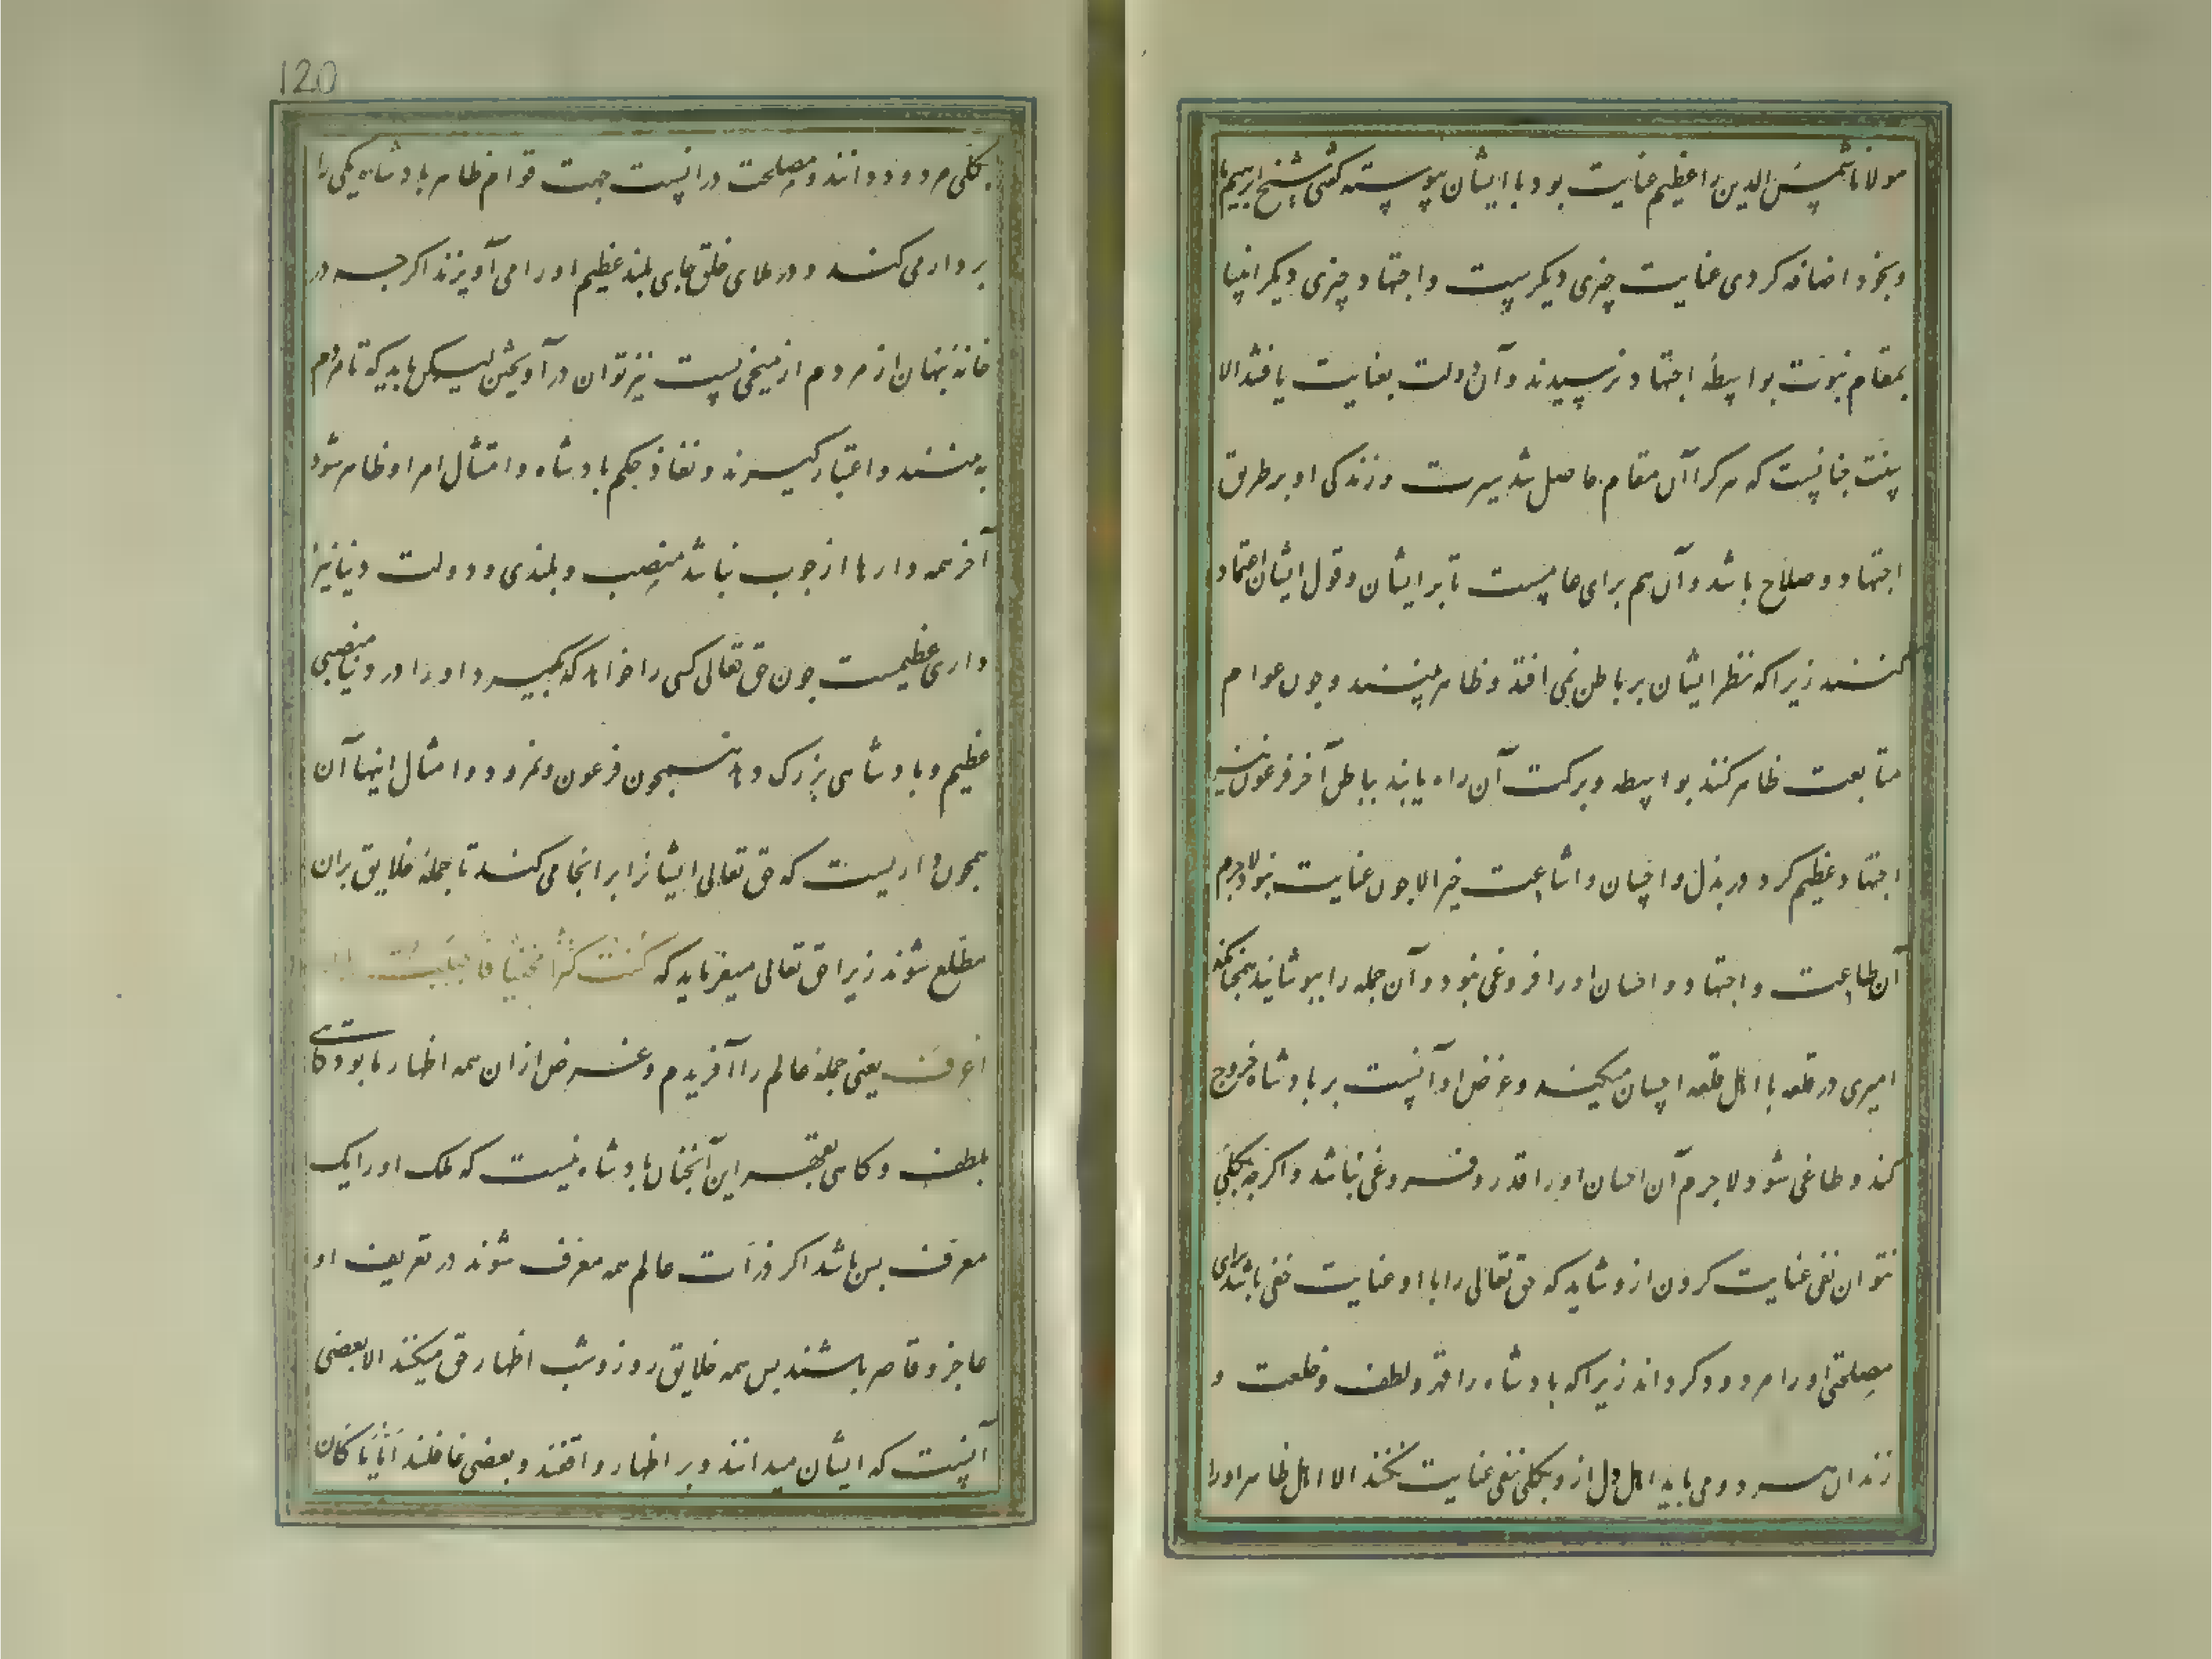 مولانا شمس الدین را عظیم عنایت بود با ایشان پیوسته گفتی شیخ ابرهیم ما
و بخود اضافه کردی عنایت چیزی دیکرست و اجتهاد چیزی دیکر انبیا
بمقام نبوت بواسطهٔ اجتهاد نرسیدند و آن دولت بعنایت یافتند الا
سنت جنانست که هرکرا آن مقام حاصل شد سیرت و زندکی او بر طریق
اجتهاد و صلاح باشد و آن هم برای عامست تا بر ایشان و قول ایشان اعتماد
کنند زیراکه نظر ایشان بر باطن نمی افتد و ظاهر بینند و چون عوام
متابعت ظاهر کنند بواسطه و برکت آن راه یابند بباطن آخر فرعون نیز
اجتهاد عظیم کرد در بذل و احسان و اشاعت خیر الا چون عنایت نبود لاجرم
آن طاعت و اجتهاد و احسان اورا فروغی نبود و آن جمله را بپوشانید همچنانکه
امیری در قلعه با اهل قلعه احسان میکند و غرض او آنست بر بادشاه خروج
کند و طاغی شود لاجرم آن احسان اورا قدر و فروغی نباشد و اکرچه بکلی
نتوان نفی عنایت کردن ازو شاید که حق تعالی را با او عنایت خفی باشد برای
مصلحتی اورا مردود کرداند زیراکه بادشاه را قهر و لطف و خلعت و
زندان هر دو می باید اهل دل ازو بکلی نفی عنایت نکنند الا اهل ظاهر اورا
120
بکلی مردود دانند و مصلحت درانست جهت قوام ظاهر بادشاه یکی را
بر دار می کند و در ملای خلق جای بلند عظیم اورا می آویزند اکرچه در
خانه نهان از مردم از میخی پست نیز توان در آویختن لیکن باید که تا مردم
به بینند و اعتبار کیرند و نفاذ حکم بادشاه و امتثال امر او ظاهر شود
آخر همه دارها از جوب نباشد منصب و بلندی و دولت دنیا نیز
داری عظیمست جون حق تعالی کسی را خواهد که بکیرد اورا در دنیا منصبی
عظیم و بادشاهی بزرک دهد همجون فرعون و نمرود و امثال اینها آن
همجون داریست که حق تعالی ایشانرا بر انجا می کند تا جمله خلایق بران
مطلع شوند زیرا حق تعالی میفرماید که کُنتُ کَنزًا مَخفِیًّا فَاَحبَبتُ اَن
اُعرَفَ یعنی جمله عالم را آفریدم و غرض ازان همه اظهار ما بود کاهی
بلطف و کاهی بقهر این آنجنان بادشاه نیست که ملک اورا یک
معرف بس باشد اکر ذرات عالم همه معرف شوند در تعریف او
عاجز و قاصر باشند بس همه خلایق روز و شب اظهار حق میکنند الا بعضی
آنست که ایشان میدانند و بر اظهار واقفند و بعضی غافلند اَیًّا مَا کَانَ